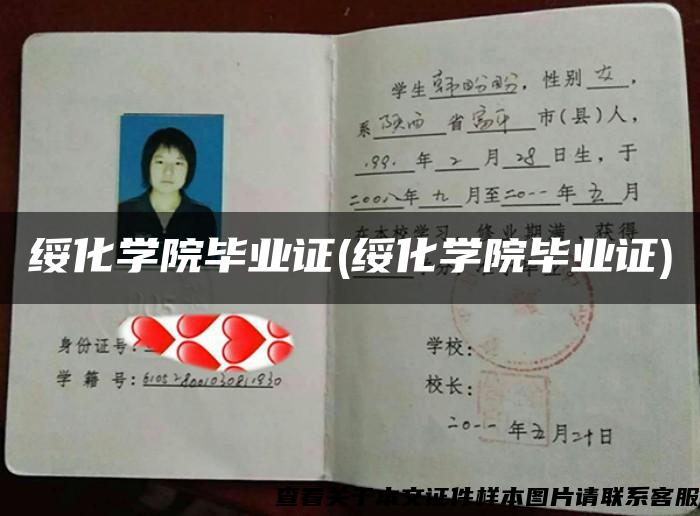 学生韩盼盼，性别女，
系陕西省富平市(县)人，
1991年2月28日生，于
二00八年九月至二0一一年五月
在本校学习，修业期满，获得
绥化学院毕业证(绥化学院毕业证)
身份证号：
学籍号：
学校：
校长：
二0一一年五月二十日
查看关于本文证件样本图片请联系客服